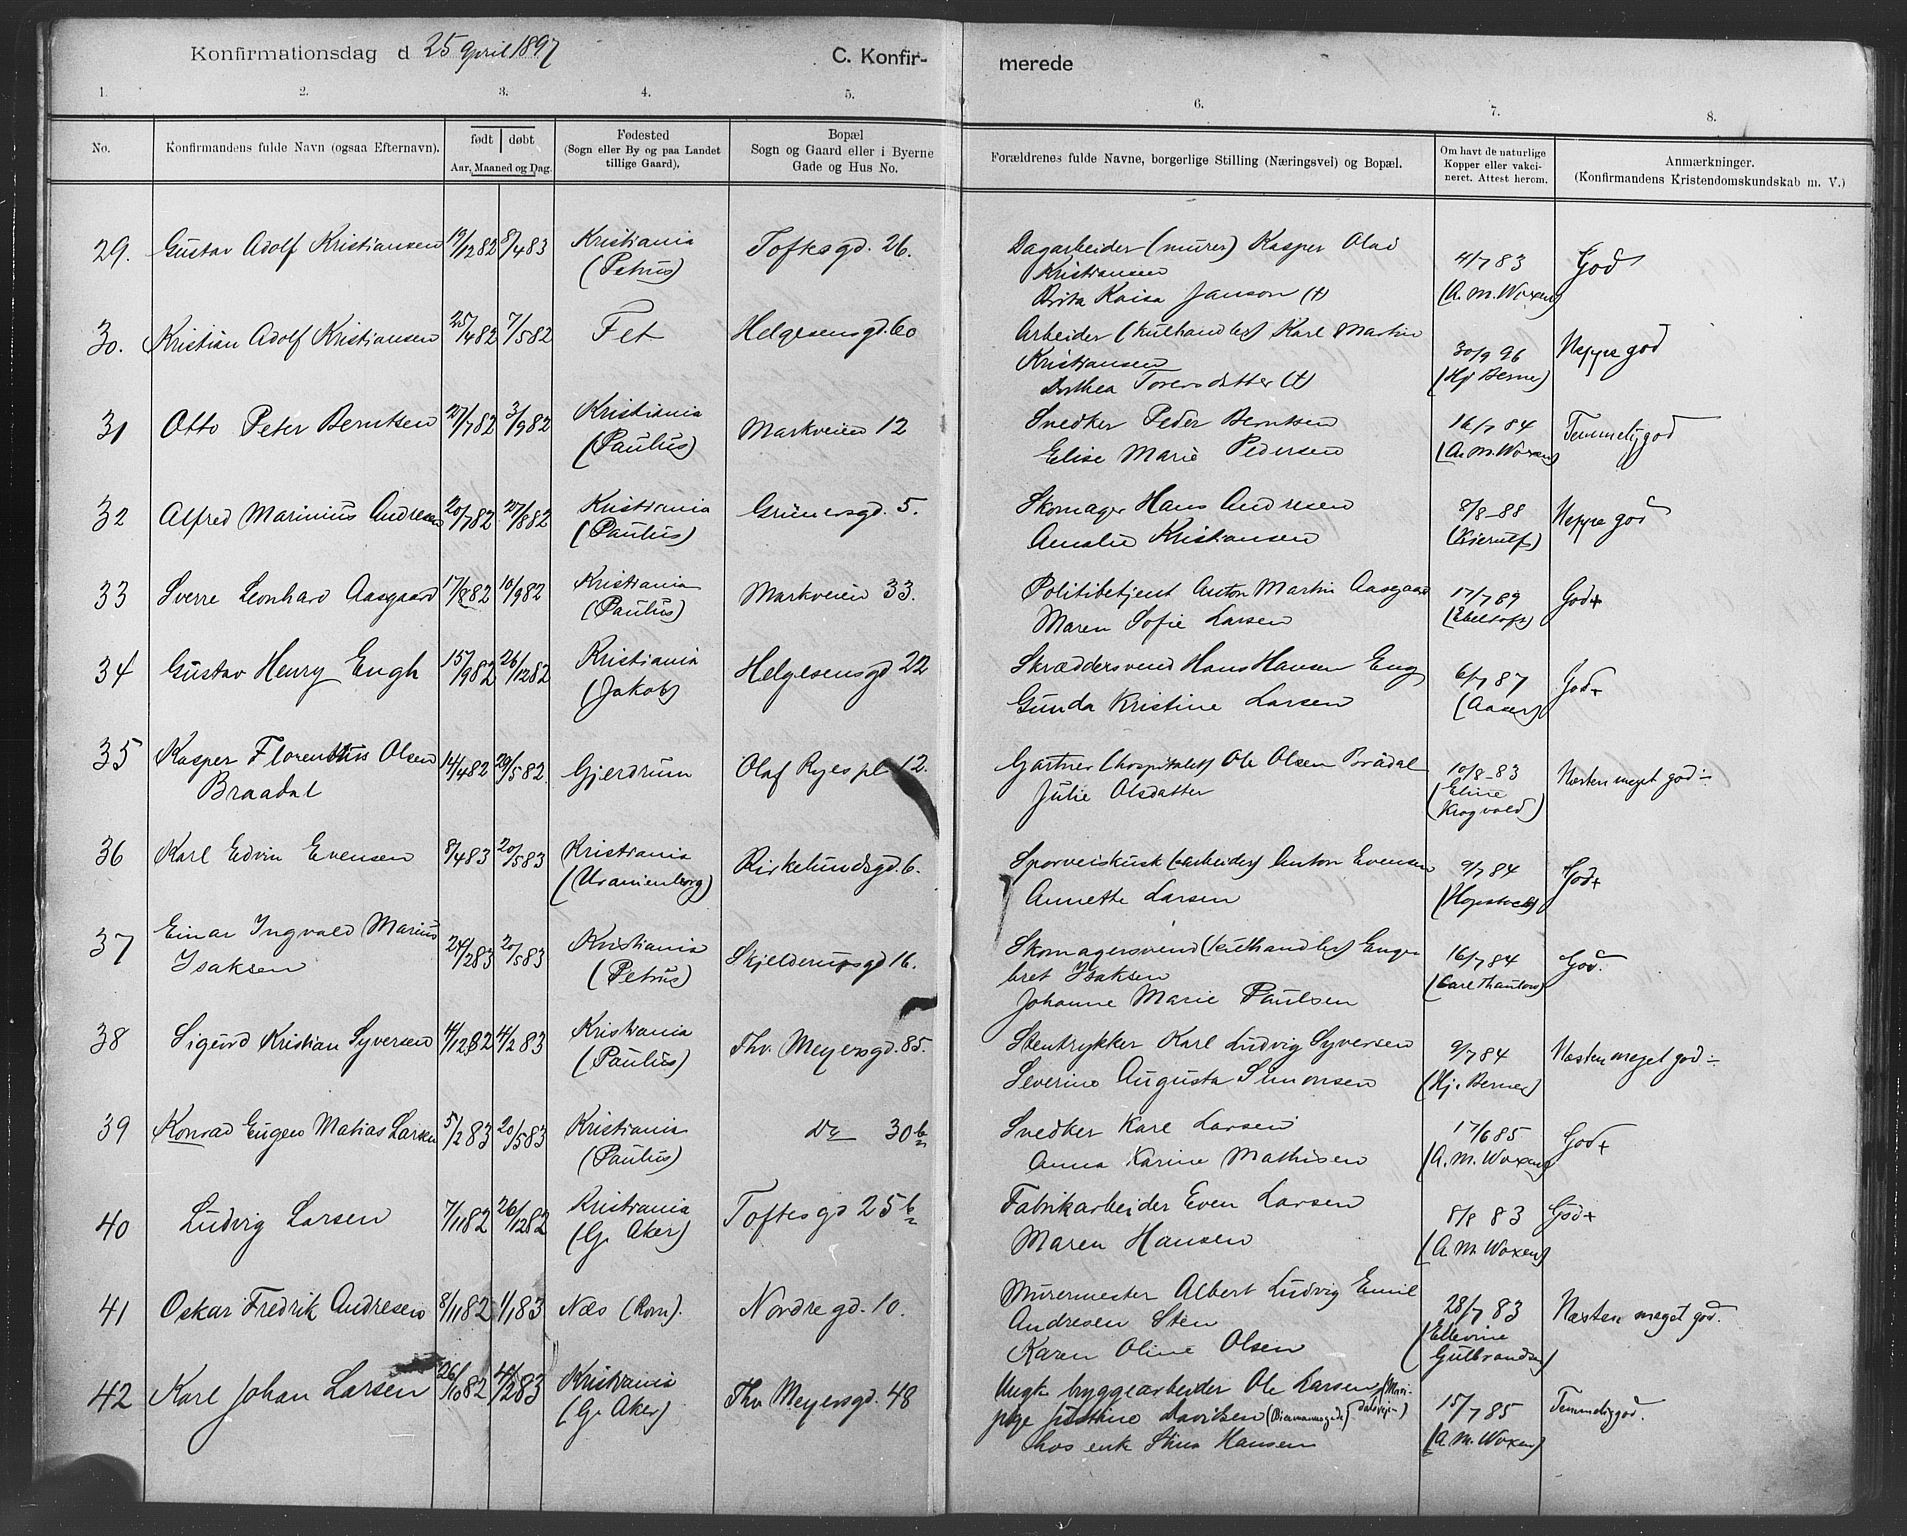 Konfirmationsdag d 25 April 1897 C. Konfir- merede
1. 2. 3. 4. 5. 6. 7. 8.
No.
Konfirmandens fulde Navn (ogsaa Efternavn).
født døbt
Aar, Maaned og Dag.
Fødested
(Sogn eller By og paa Landet
tillige Gaard).
Bopæl
Sogn og Gaard eller i Byerne
Gade og Hus No.
Forældrenes fulde Navne, borgerlige Stilling (Næringsvei) og Bopæl.
Om havt de naturlige
Kopper eller vakci-
neret. Attest herom.
Anmærkninger.
(Konfirmandens Kristendomskundskab m. V.)
29. Gustav Adolf Kristiansen 19/12 82 8/4 83 Kristiania Toftesgd. 26. Dagarbeider (murer) Kasper Olai 4/7 83 God
(Petrus) Kristiansen (A. M. Woxen)
Brita Kaisa Janson (+)
30. Kristian Adolf Kristiansen 25/4 82 7/5 82 Fet Helgesensgd. 60 Arbeider (kulhandler) Karl Martin 30/9 96 Neppe god
Kristiansen (Hj Berner)
Dorthea Toversdatter (+)
31 Otto Peter Berntsen 27/7 82 3/9 82 Kristiania Markveien 12 Snedker Peder Berntsen 16/7 84 Temmelig god
(Paulus) Elise Marie Pedersen (A. M. Woxen)
32 Alfred Marinius Andresen 20/7 82 27/8 82 Kristiania Grünersgd. 5. Skomager Hans Andresen 8/8-88 Neppe god
(Paulus) Amalie Kristiansen (Kierulf)
33 Sverre Leonhard Aasgaard 17/8 82 10/9 82 Kristiania Markveien 33. Politibetjent Anton Martin Aasgaard 17/7 89 God+
(Paulus) Maren Sofie Larsen (Ebeltoft)
34 Gustav Henry Engh 15/9 82 26/12 82 Kristiania Helgesensgd 22 Skræddersvend Hans Hansen Eng 6/7 87 God+
(Jakob) Gunda Kristine Larsen (Aaser)
35 Kasper Florentius Olsen 14/4 82 29/5 82. Gjerdrum Olaf Ryes pl 12. Gartner (hospitalet) Ole Olsen Brådal 10/8-83 Næsten meget god÷
Braadal Julie Olsdatter (Eline
Krogvold)
36 Karl Edvin Evensen 8/4 83 20/5 83 Kristiania Birkelundsgd. 6. Sporveiskusk (arbeider) Anton Evensen 9/7 84 God+
(Uranienborg) Annette Larsen (Hopstock)
37 Einar Ingvald Marius 24/2 83 20/5 83 Kristiania Skjelderupsgd 16. Skomagersvend (kulhandler) Enge- 16/7 84 God.
Isaksen (Petrus) bret Isaksen (Carl Thaulow)
Johanne Marie Paulsen
38 Sigurd Kristian Syversen 4/12 82 4/2 83 Kristiania Thv. Meyersgd. 85. Stentrykker Karl Ludvig Syversen 9/7 84 Næsten meget god÷
(Paulus) Severine Augusta Simonsen (Hj. Berner)
39 Konrad Eugen Matias Larsen 5/2 83 20/5 83 Kristiania do 30 b Snedker Karl Larsen 17/6 85 God+
(Paulus) Anna Karine Mathisen (A. M. Woxen)
40 Ludvig Larsen 7/11 82 26/12 82 Kristiania Toftesgd 25 b Fabrikarbeider Even Larsen 8/8 83 God+
(G. Aker) Maren Hansen (A. M Woxen)
41 Oskar Fredrik Andresen 8/11 82 1/1 83 Næs (Rom). Nordregd. 10. Murermester Albert Ludvig Emil 28/7 83 Næsten meget god.
Andresen Sten (Ellevine
Karen Oline Olsen Gulbrandsen)
42 Karl Johan Larsen 26/10 82 4/2 83 Kristiania Thv Meyersgd. 48 Ungk bryggearbeider Ole Larsen (Mari- 15/7 85 Temmelig god.
(G. Aker) pige Justine Davidsen dalsveien) (A. M. Woxen)
hos enk Stina Hansen